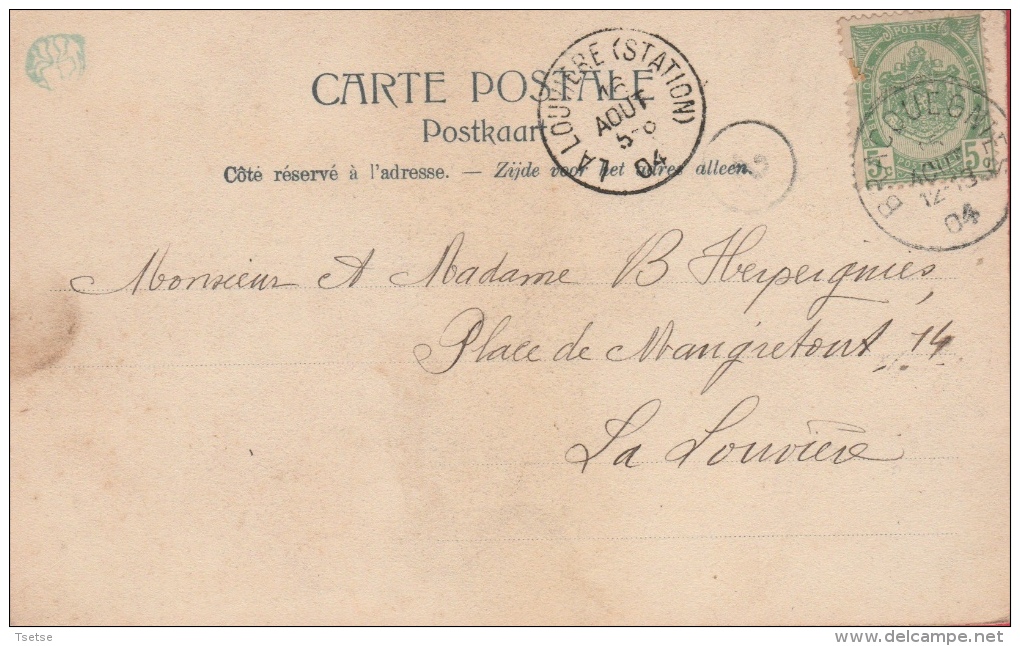 CARTE POSTALE
Postkaart
Côté réservé à l'adresse. — Zijde voor het adres alleen.
LA LOUVIÈRE (STATION)
16
AOUT
5-6
1904
POSTES
5c 5c
AOUT
12-13
04
Monsieur & Madame B Herpeignies,
Place de Mangretout, 14
La Louvière
Tsetse
delcampe.net